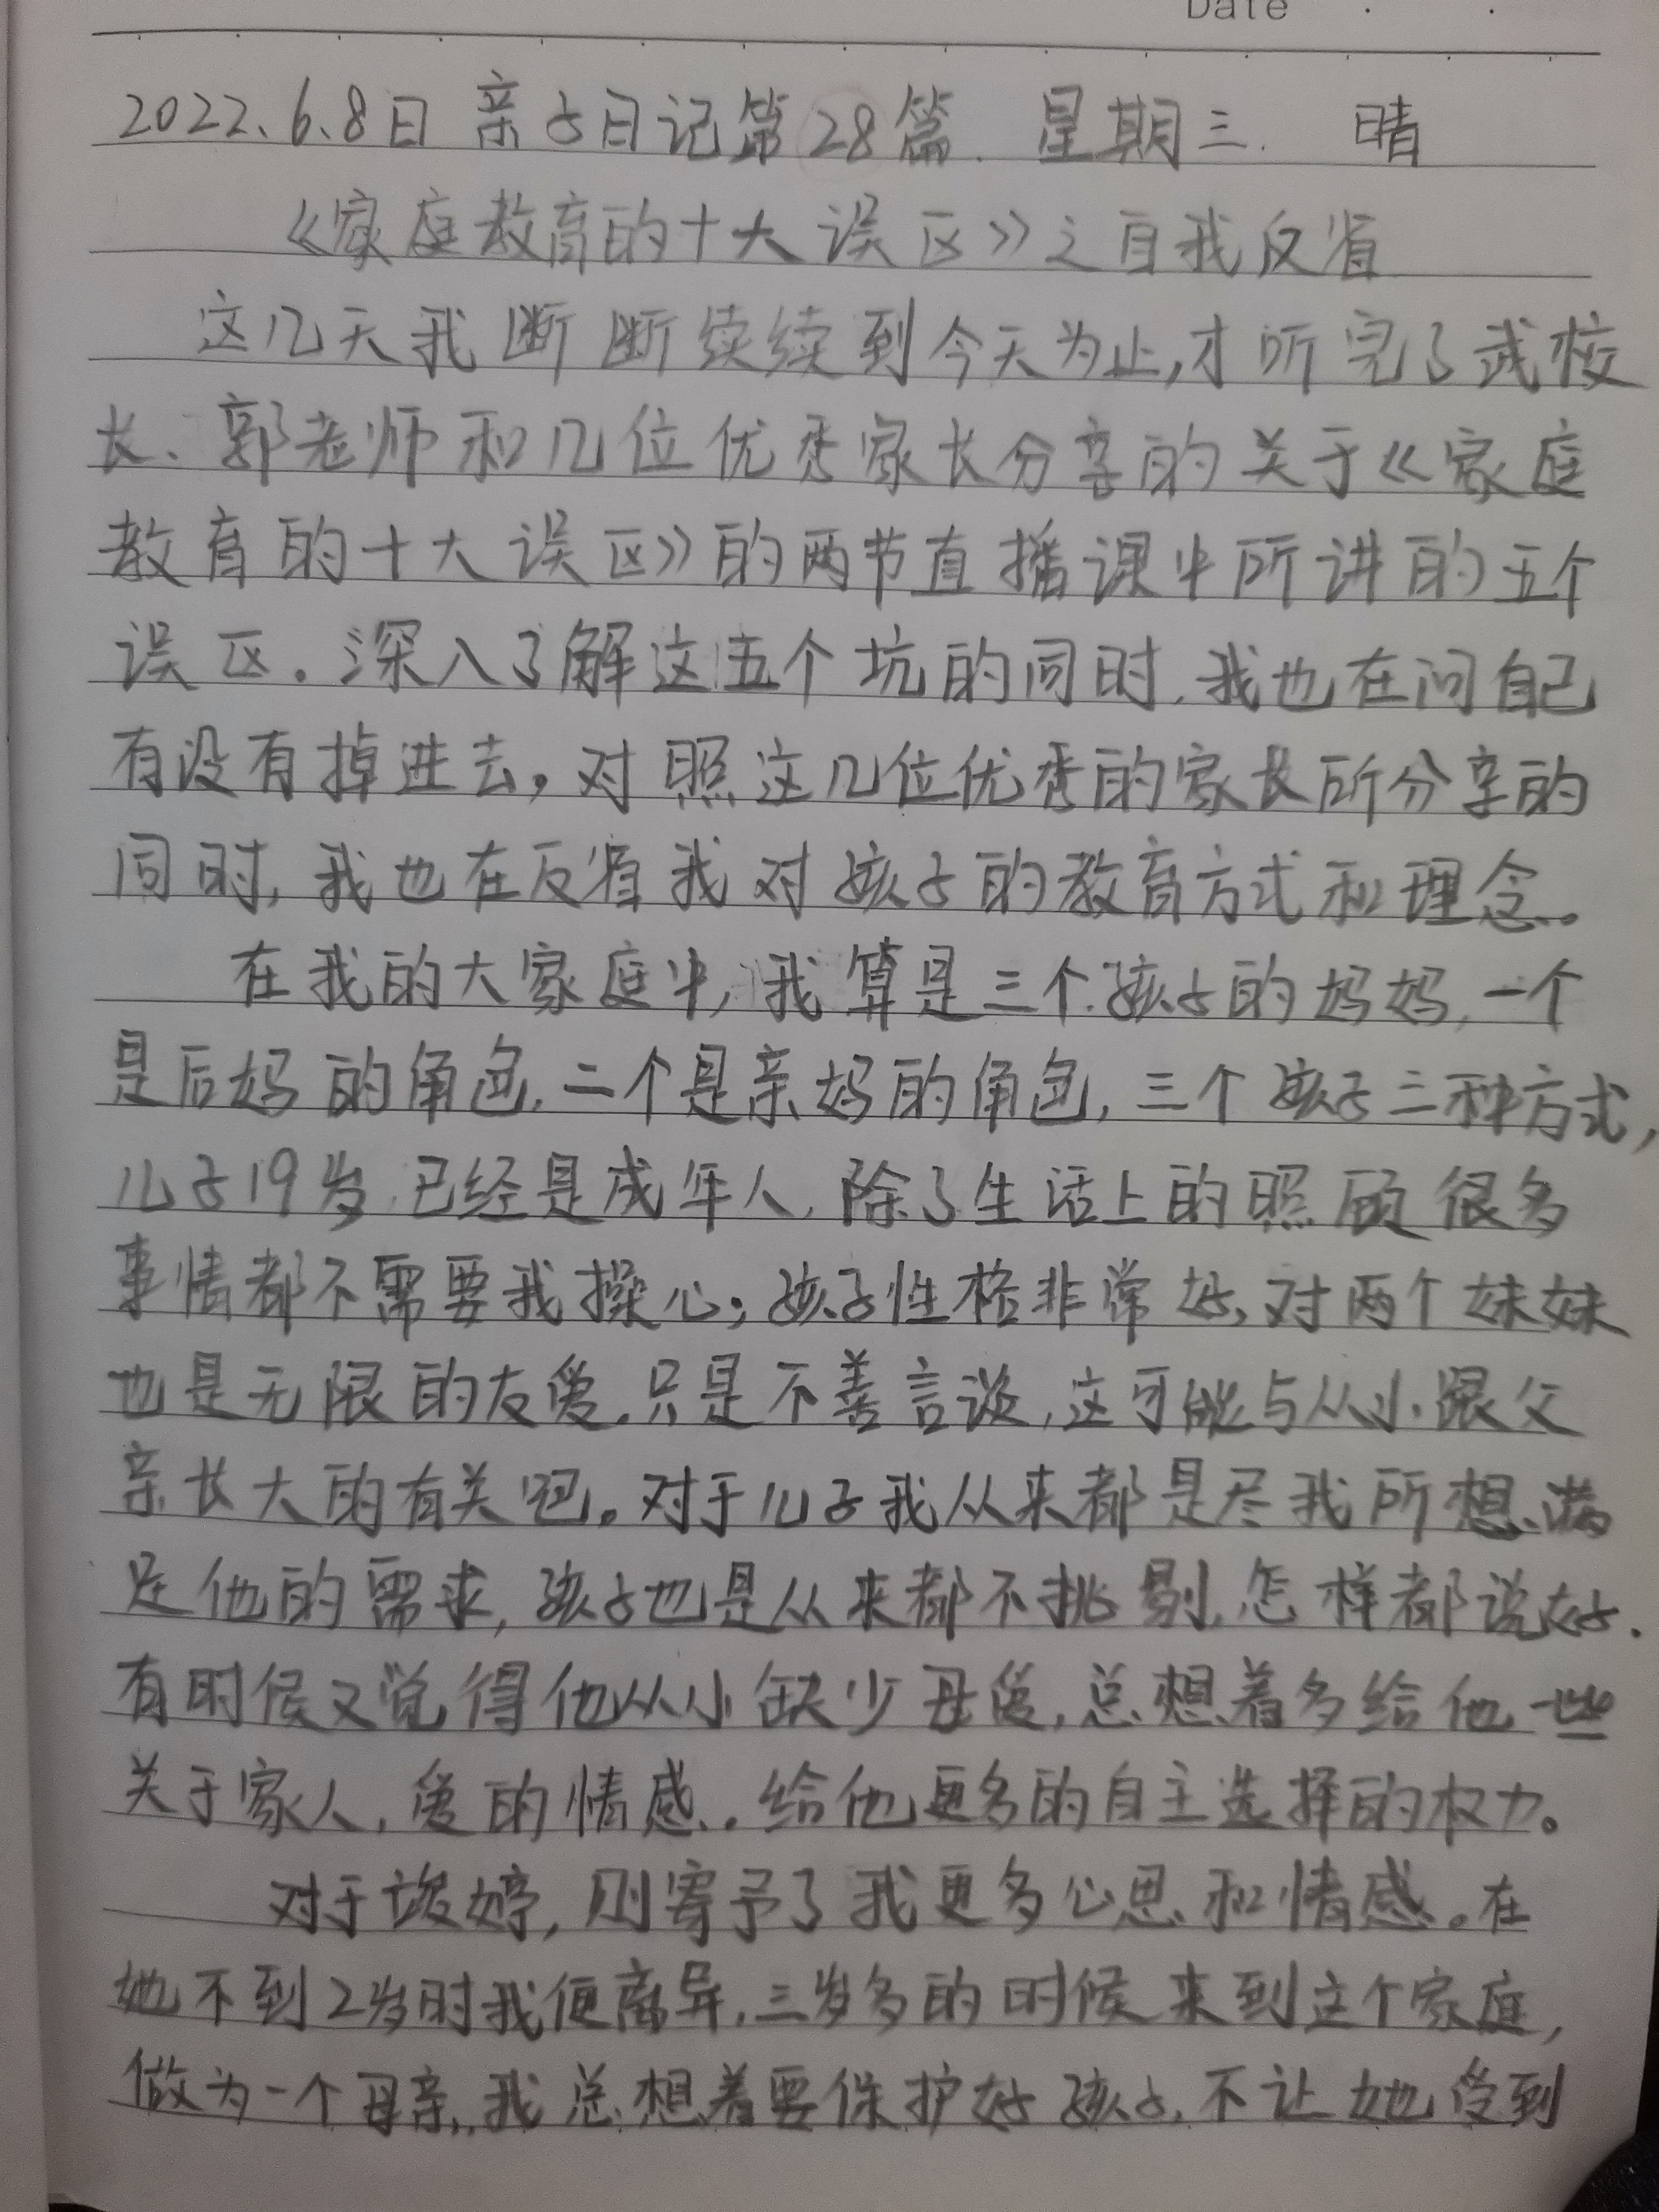 Date
2022.6.8日 亲子日记第28篇. 星期三. 晴
《家庭教育的十大误区》之自我反省
这几天我断断续续到今天为止,才听完了武校
长、郭老师和几位优秀家长分享的关于《家庭
教育的十大误区》的两节直播课中所讲的五个
误区。深入了解这五个坑的同时,我也在问自己
有没有掉进去。对照这几位优秀的家长所分享的
同时,我也在反省我对孩子的教育方式和理念。
在我的大家庭中,我算是三个孩子的妈妈,一个
是后妈的角色,二个是亲妈的角色,三个孩子三种方式,
儿子19岁,已经是成年人,除了生活上的照顾很多
事情都不需要我操心;孩子性格非常好,对两个妹妹
也是无限的友爱,只是不善言谈,这可能与从小跟父
亲长大的有关吧。对于儿子我从来都是尽我所想满
足他的需求,孩子也是从来都不挑剔,怎样都说好.
有时候又觉得他从小缺少母爱,总想着多给他一些
关于家人,爱的情感。给他更多的自主选择的权力。
对于婷,则寄予了我更多心思和情感。在
她不到2岁时我便离异,三岁多的时候来到这个家庭,
做为一个母亲,我总想着要保护好孩子,不让她受到